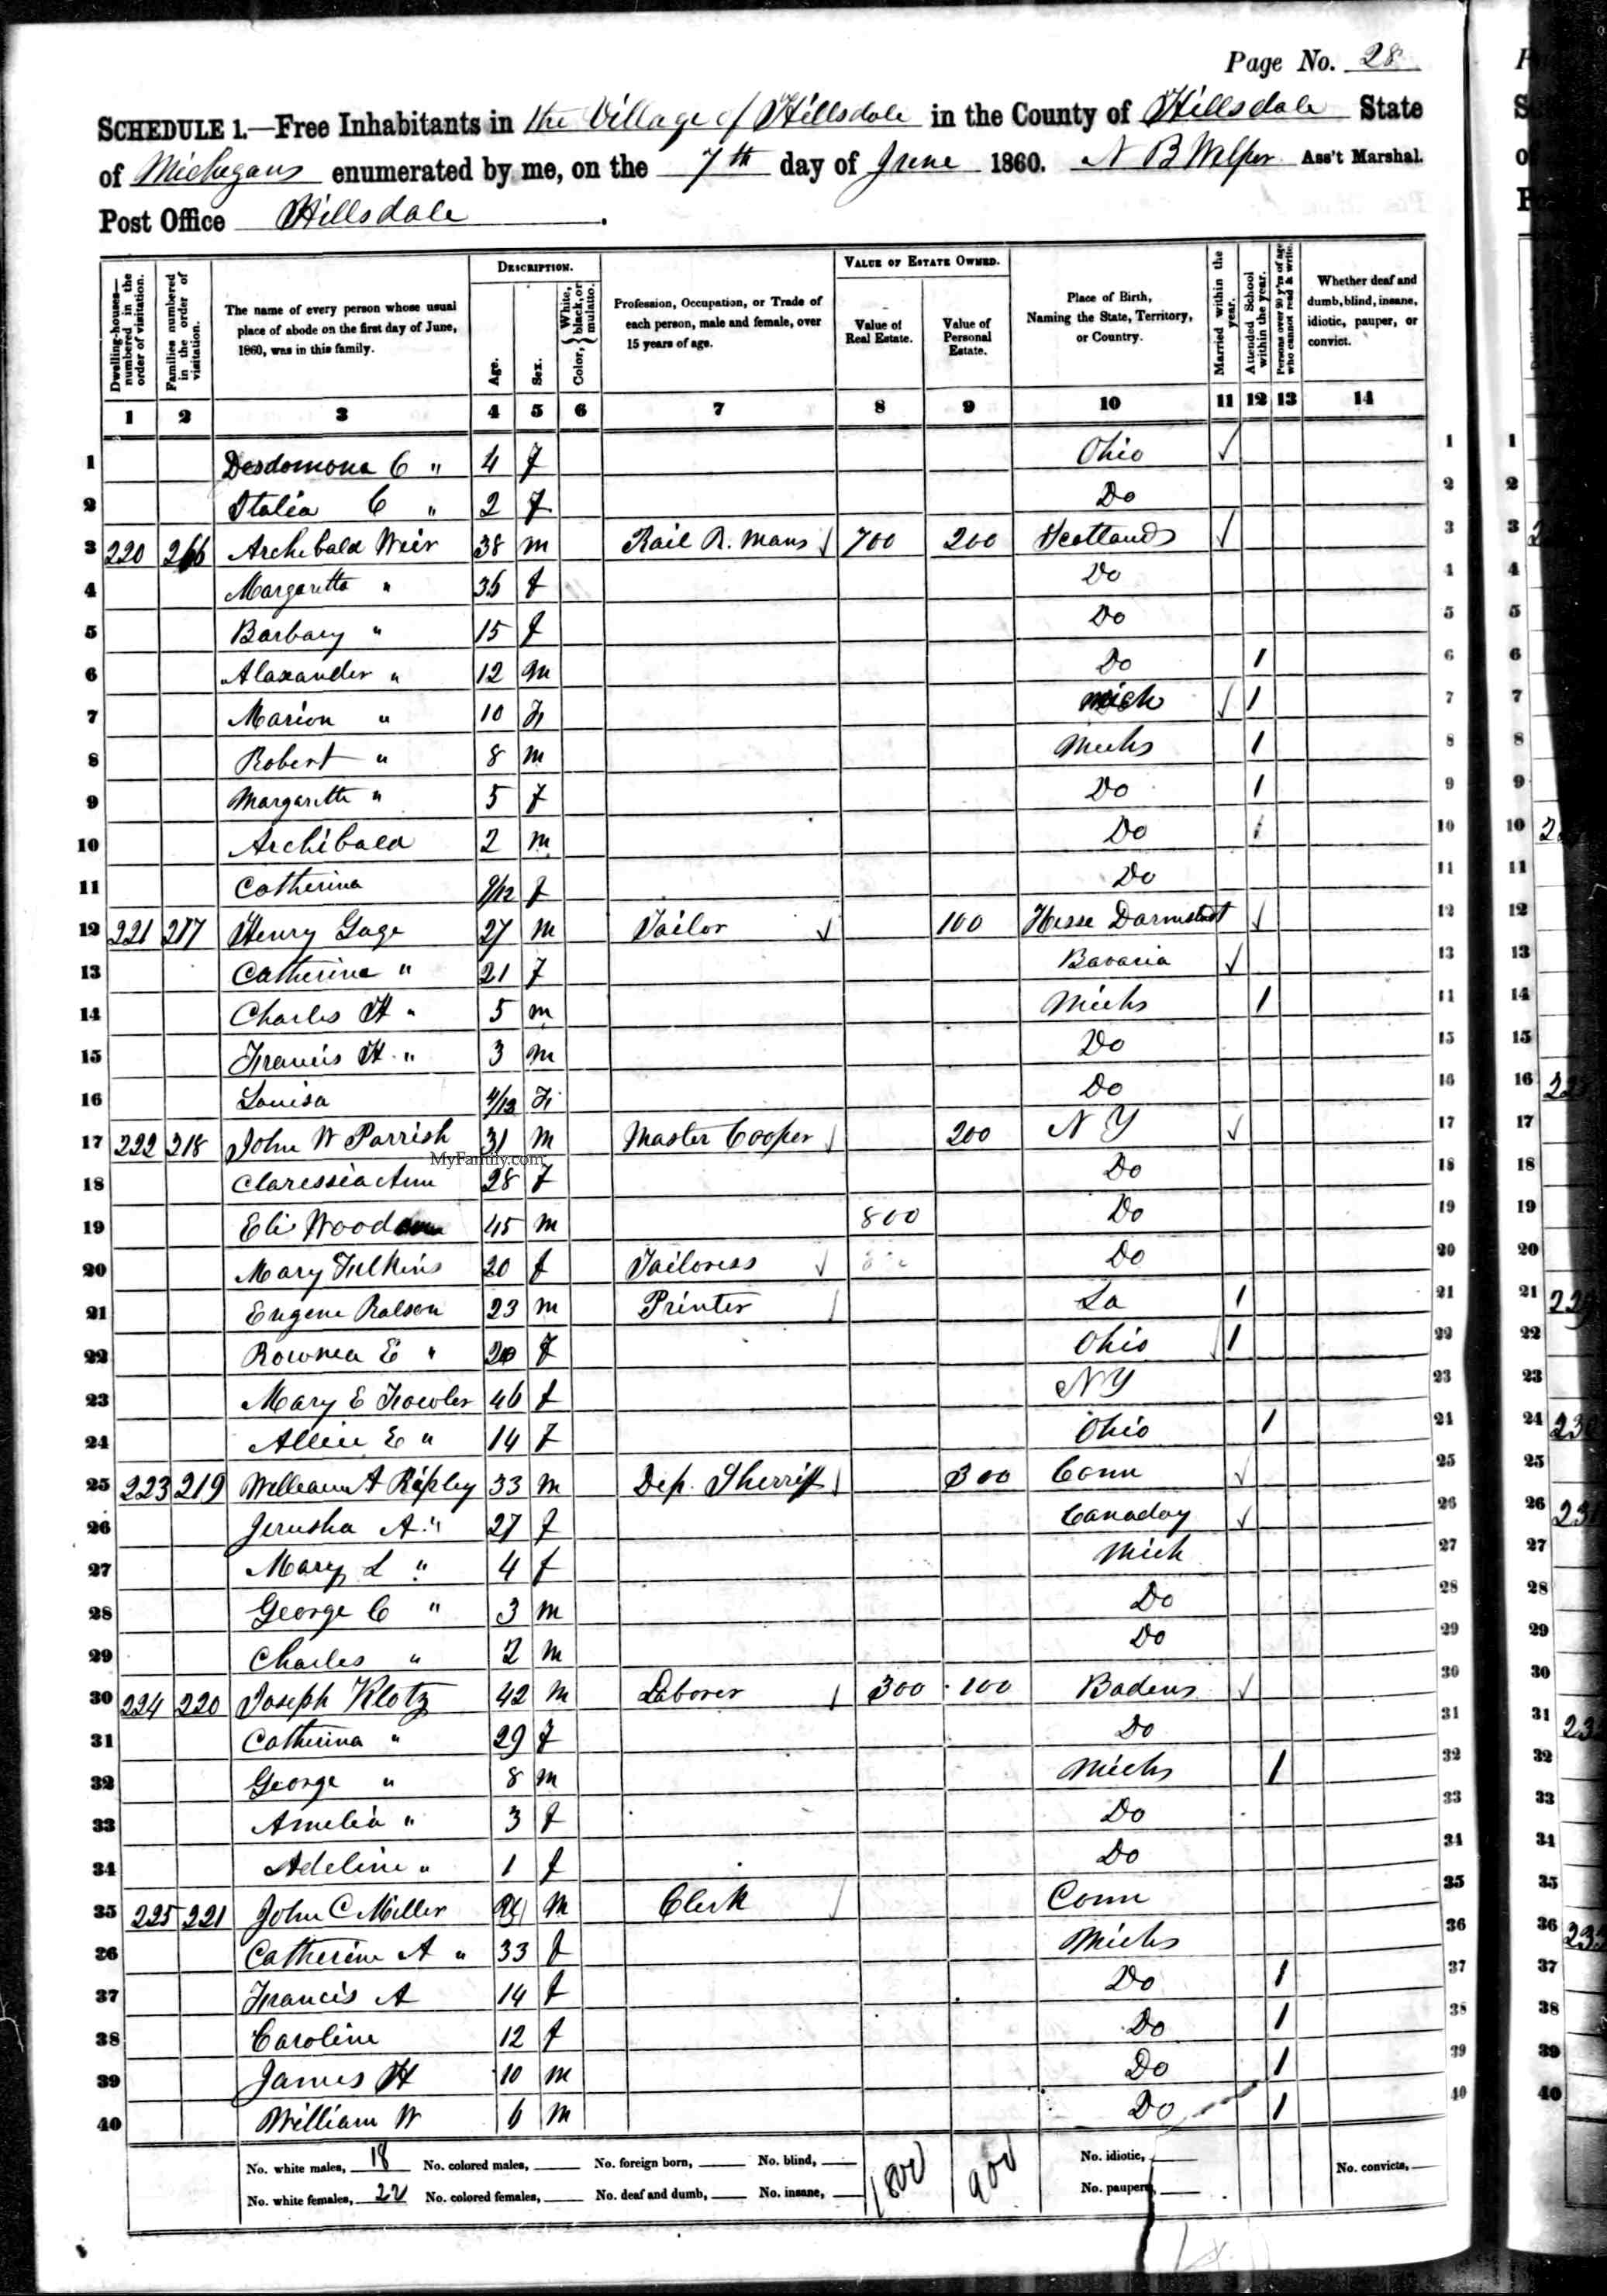 Page No. 28
SCHEDULE 1.—Free Inhabitants in the Village of Hillsdale in the County of Hillsdale State
of Michigan enumerated by me, on the 7th day of June 1860. N B Ass't Marshal.
Post Office Hillsdale.
Dwelling-houses—numbered in the order of visitation.
Families numbered in the order of visitation.
The name of every person whose usual place of abode on the first day of June, 1860, was in this family.
DESCRIPTION.
Age.
Sex.
Color, { White, black, or mulatto.
Profession, Occupation, or Trade of each person, male and female, over 15 years of age.
VALUE OF ESTATE OWNED.
Value of Real Estate.
Value of Personal Estate.
Place of Birth, Naming the State, Territory, or Country.
Married within the year.
Attended School within the year.
Persons over 20 y'rs of age who cannot read & write.
Whether deaf and dumb, blind, insane, idiotic, pauper, or convict.
1 2 3 4 5 6 7 8 9 10 11 12 13 14
1 Desdomona C " 4 f Ohio 1
2 Italia C " 2 f Do 2
3 220 266 Archibald Weir 38 m Rail R. Man 700 200 Scotland 3
4 Margaretta " 36 f Do 4
5 Barbary " 15 f Do 5
6 Alaxander " 12 m Do 1 6
7 Marion " 10 F Mich 1 7
8 Robert " 8 m Mich 1 8
9 Margarette " 5 f Do 1 9
10 Archibald 2 m Do 1 10
11 Catherina 9/12 f Do 11
12 221 217 Henry Gage 27 m Tailor 100 Hesse Darmstadt 12
13 Catherine " 21 f Bavaria 13
14 Charles H " 5 m Mich 1 14
15 Francis H " 3 m Do 15
16 Louisa 4/12 F Do 16
17 222 218 John W Parrish 31 m Master Cooper 200 N Y 17
MyFamily.com
18 Claressia Ann 28 f Do 18
19 Eli 45 m 800 Do 19
20 Mary Fulkins 20 f Tailoress Do 20
21 Eugene Ralson 23 m Printer La 1 21
22 E " 20 f Ohio 1 22
23 Mary E Fowler 46 f N Y 23
24 E " 14 f Ohio 1 24
25 223 219 William A Ripley 33 m Dep. Sherriff 300 Conn 25
26 Jerusha A " 27 f Canaday 26
27 Mary L " 4 f Mich 27
28 George C " 3 m Do 28
29 Charles " 2 m Do 29
30 224 220 Joseph Klotz 42 m Laborer 300 100 Baden 30
31 Catherina " 29 f Do 31
32 George " 8 m Mich 1 32
33 Amelia " 3 f Do 33
34 Adeline " 1 f Do 34
35 225 221 John C Miller m Clerk Conn 35
26 Catherine A " 33 f Mich 36
37 Francis A 14 f Do 1 37
38 Caroline 12 f Do 1 38
39 James H 10 m Do 1 39
40 William W 6 m Do 1 40
No. white males, 18 No. colored males, No. foreign born, No. blind, 1800 900 No. idiotic, No. convicts,
No. white females, 22 No. colored females, No. deaf and dumb, No. insane, No. paupers,